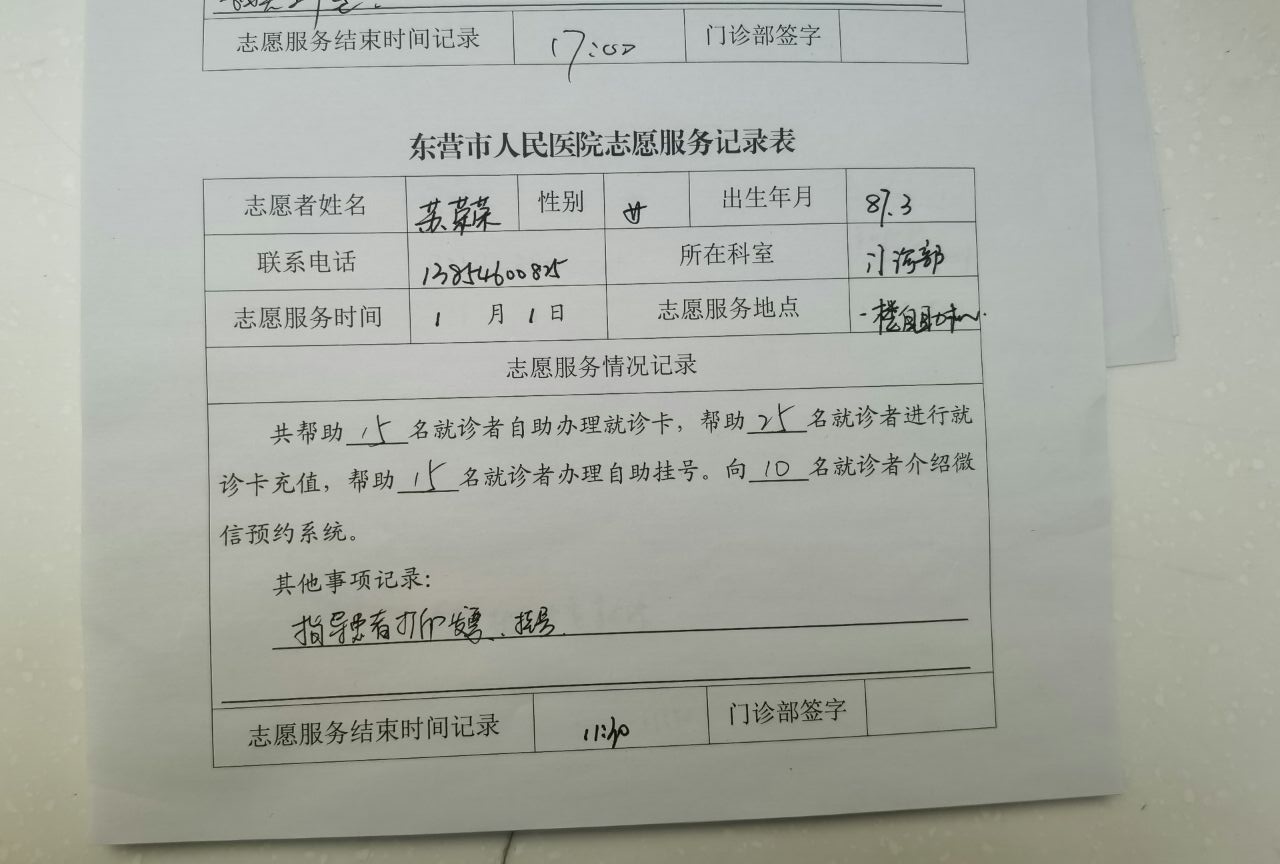 志愿服务结束时间记录 17:00 门诊部签字
东营市人民医院志愿服务记录表
志愿者姓名 苏荣荣 性别 女 出生年月 87.3
联系电话 13854600825 所在科室 门诊部
志愿服务时间 1 月 1 日 志愿服务地点 一楼自助机
志愿服务情况记录
共帮助 15 名就诊者自助办理就诊卡，帮助 25 名就诊者进行就
诊卡充值，帮助 15 名就诊者办理自助挂号。向 10 名就诊者介绍微
信预约系统。
其他事项记录：
指导患者打印发票、挂号.
志愿服务结束时间记录 门诊部签字